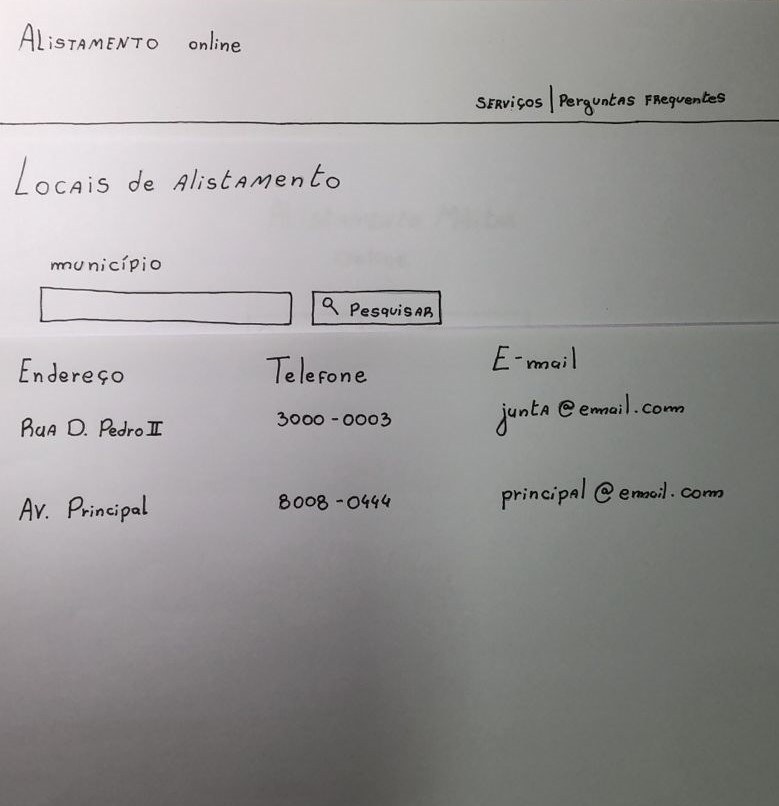 Alistamento online
Serviços | Perguntas Frequentes
Locais de Alistamento
município
Pesquisar
Endereço Telefone E-mail
Rua D. Pedro II 3000-0003 junta@email.com
Av. Principal 8008-0444 principal@email.com